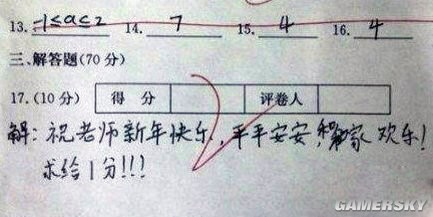 13. -1≤a≤2 14. 7 15. 4 16. 4
三、解答题(70分)
17.(10分) 得 分 评卷人
解:祝老师新年快乐,平平安安,家欢乐!
求给1分!!!
GAMERSKY